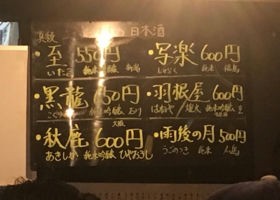 日本酒
・至 550円
いたる 純米吟醸 新潟
・写楽 600円
しゃらく 純米 福島
・黒龍 650円
純米吟醸
・羽根屋 600円
はねや 純米吟醸
・秋鹿 600円
大阪
あきしか 純米吟醸 ひやおろし
・雨後の月 500円
うごのつき 純米 広島